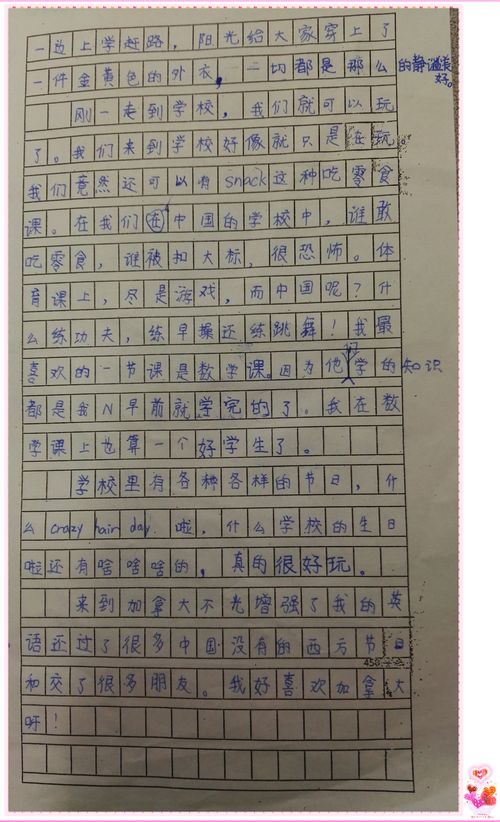 一边上学赶路，阳光给大家穿上了
一件金黄色的外衣，一切都是那么的静谧美好。
刚一走到学校，我们就可以玩
了。我们来到学校好像就只是在玩。
我们竟然还可以有snack这种吃零食
课。在我们在中国的学校中，谁敢
吃零食，谁被扣大标，很恐怖。体
育课上，尽是游戏，而中国呢？什
么练功夫，练早操还练跳舞！我最
喜欢的一节课是数学课。因为他们学的知识
都是我N早前就学完的了。我在数
学课上也算一个好学生了。
学校里有各种各样的节日，什
么crazy hair day 啦，什么学校的生日
啦还有啥啥啥的，真的很好玩。
来到加拿大不光增强了我的英
语还过了很多中国没有的西方节日
450
和交了很多朋友。我好喜欢加拿大
呀！